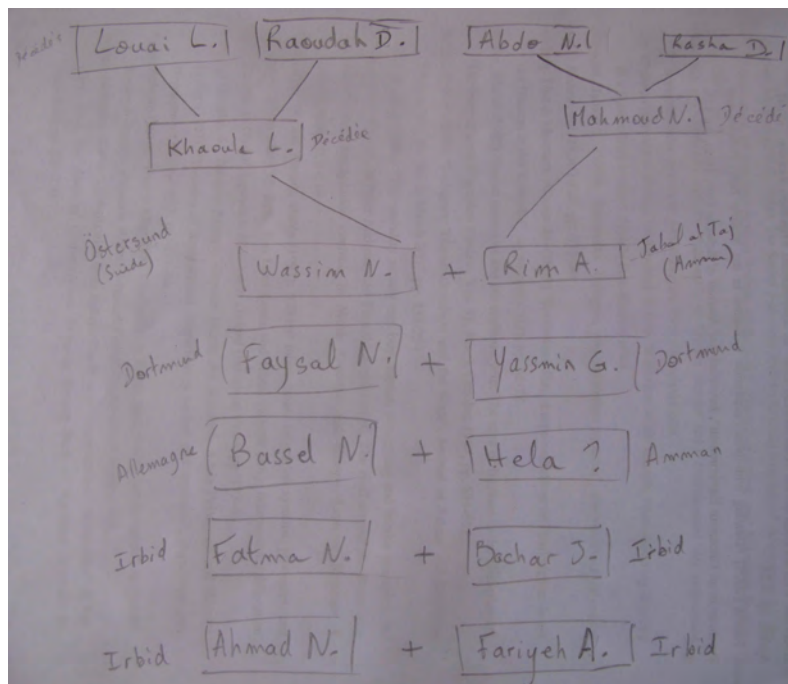 Louai L. Raoudah D. Abdo N. Rasha D.
Khaoula L. Décédée Mahmoud N. Décédé
Östersund (Suède) Wassim N. + Rim A. (Amman)
Dortmund Faysal N. + Yassmin G. Dortmund
Allemagne Bassel N. + Hela ? Amman
Irbid Fatma N. + Bachar J. Irbid
Irbid Ahmad N. + Fariyeh A. Irbid